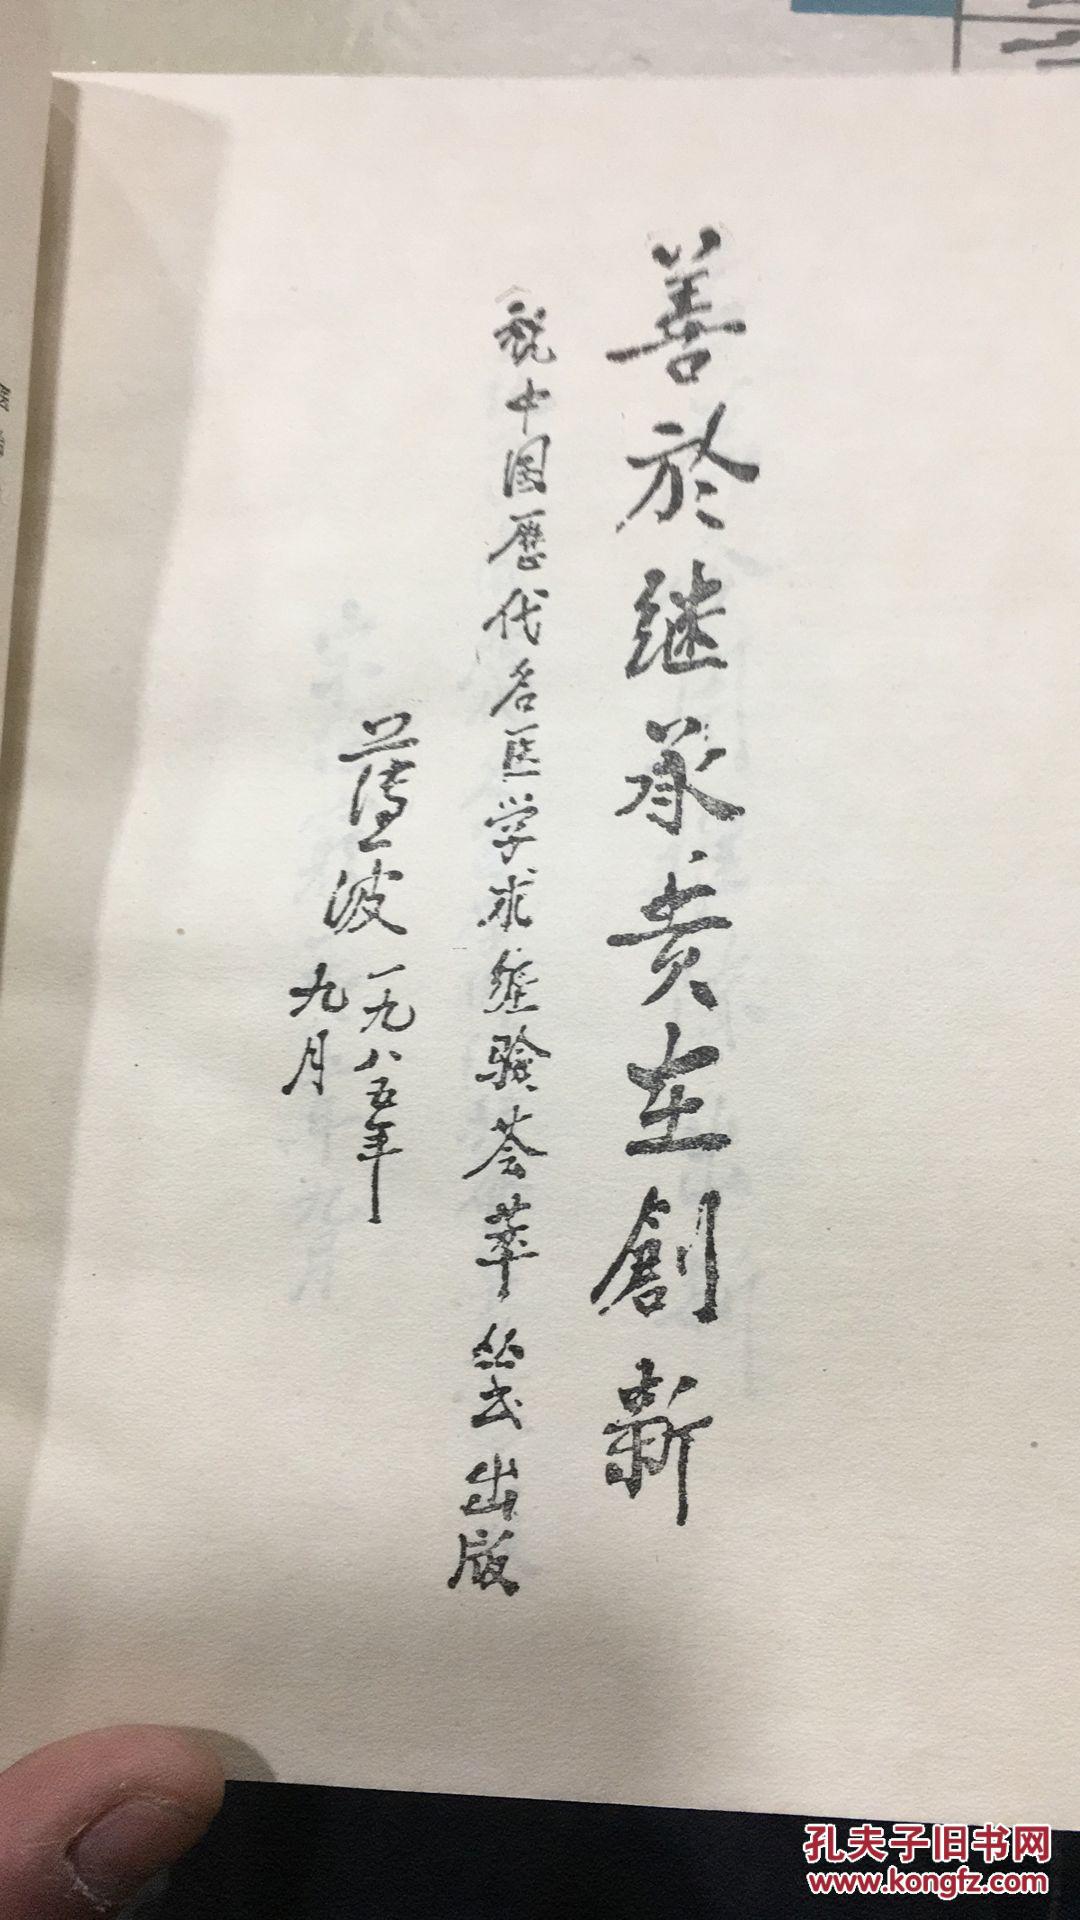 善於继承贵在創新
祝中国历代名医学术经验荟萃丛书出版
薄一波
一九八五年
九月
孔夫子旧书网
www.kongfz.com